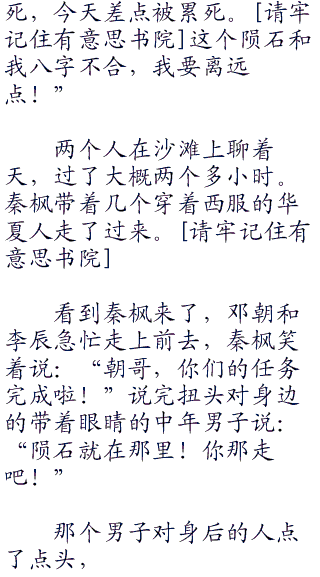 死，今天差点被累死。[请牢
记住有意思书院]这个陨石和
我八字不合，我要离远
点！”
两个人在沙滩上聊着
天，过了大概两个多小时。
秦枫带着几个穿着西服的华
夏人走了过来。[请牢记住有
意思书院]
看到秦枫来了，邓朝和
李辰急忙走上前去，秦枫笑
着说：“朝哥，你们的任务
完成啦！”说完扭头对身边
的带着眼睛的中年男子说：
“陨石就在那里！你那走
吧！”
那个男子对身后的人点
了点头，